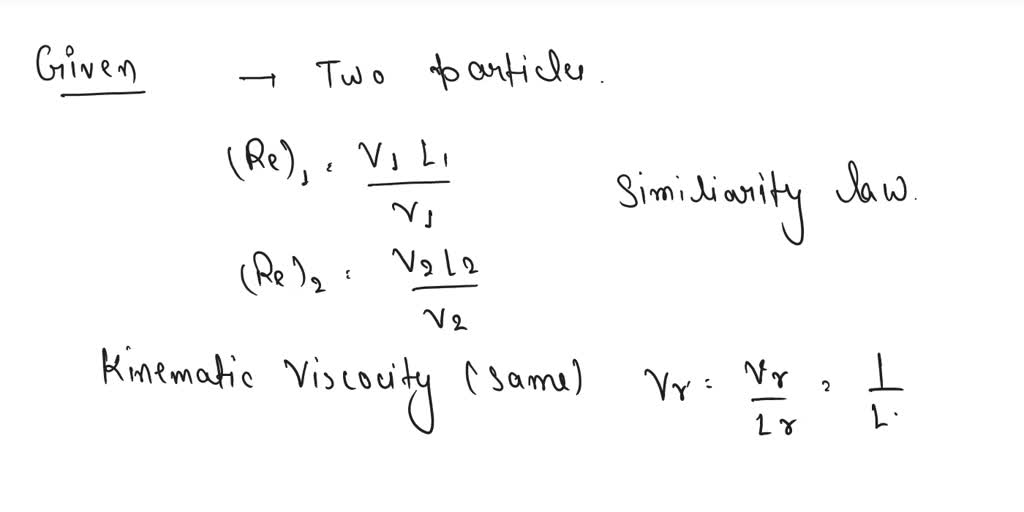 Given → Two particles.
(Re)₁ = V₁ L₁ / ν₁
Similiarity law.
(Re)₂ = V₂ L₂ / ν₂
Kinematic Viscocity (same) Vr = νr / Lr = 1 / L.